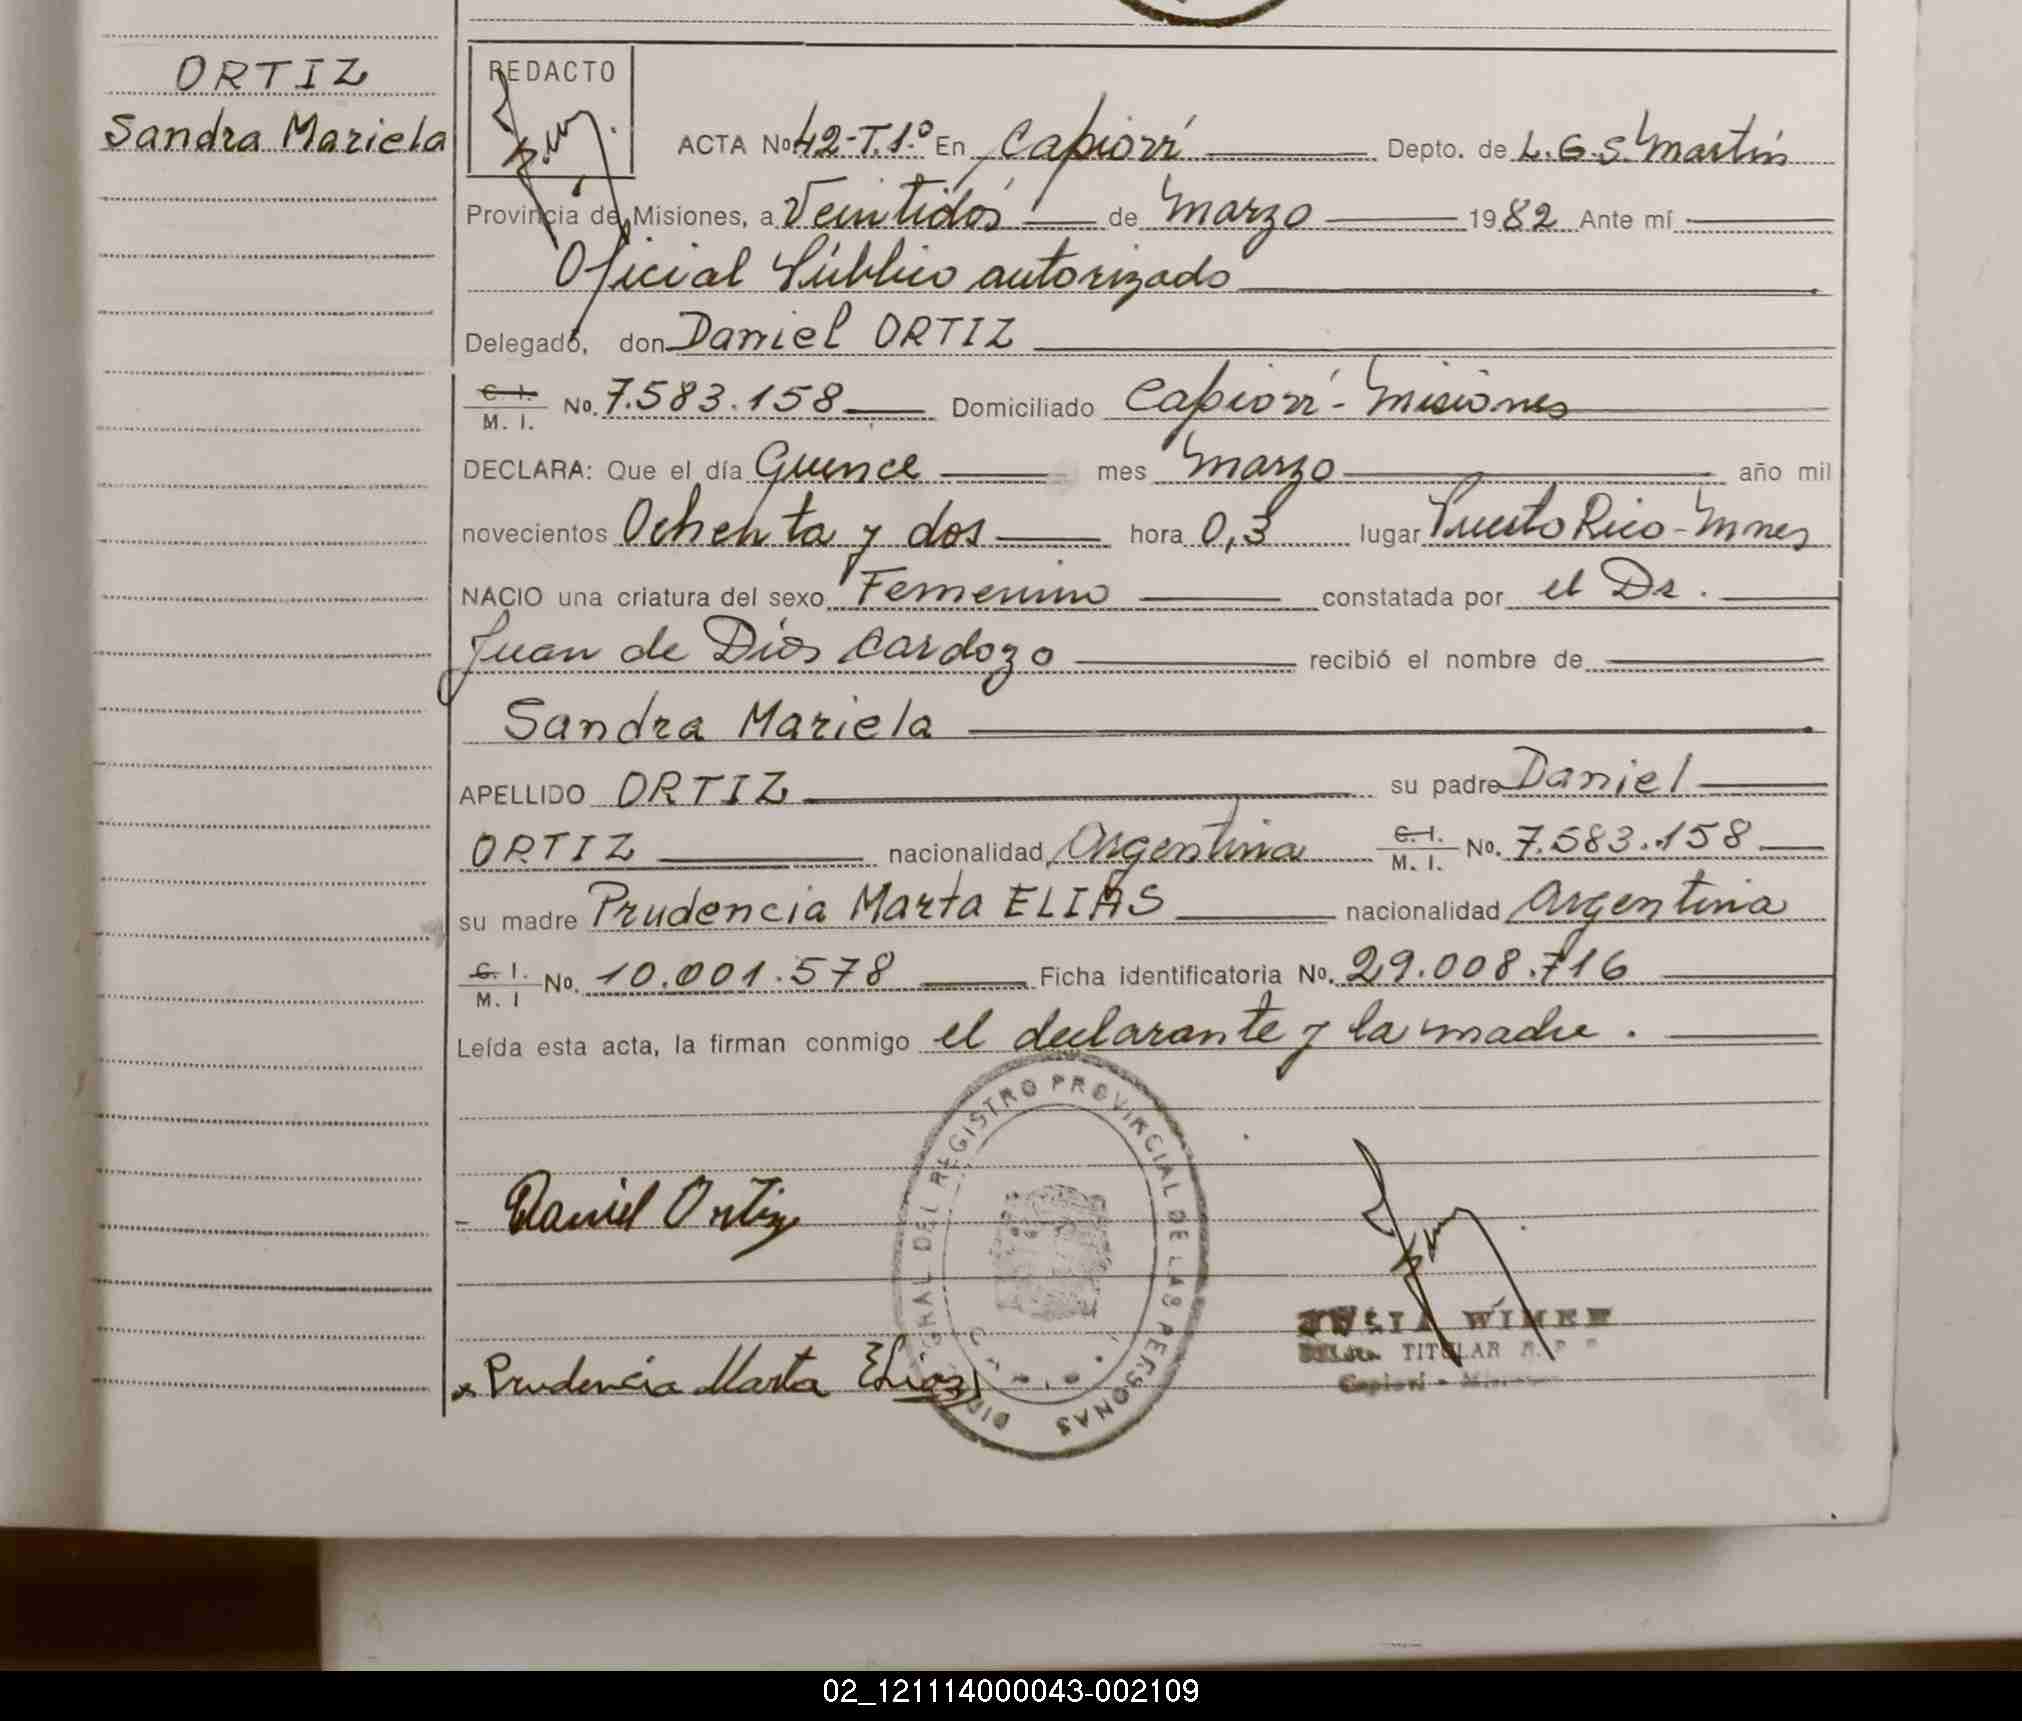 ORTIZ
Sandra Mariela
REDACTO
ACTA No 42-T.1.º En Capioví Depto. de L.G.S. Martín
Provincia de Misiones, a Veintidós de Marzo 1982 Ante mí
Oficial Público autorizado
Delegado, don Daniel ORTIZ
C. I. / M. I. No. 7.583.158 Domiciliado Capioví - Misiones
DECLARA: Que el día Quince mes Marzo año mil
novecientos Ochenta y dos hora 0,3 lugar Puerto Rico - Mnes
NACIO una criatura del sexo Femenino constatada por el Dr.
Juan de Dios Cardozo recibió el nombre de
Sandra Mariela
APELLIDO ORTIZ su padre Daniel
ORTIZ nacionalidad Argentina C. I. / M. I. No. 7.583.158
su madre Prudencia Marta ELIAS nacionalidad Argentina
C. I. / M. I No. 10.001.578 Ficha identificatoria No. 29.008.716
Leída esta acta, la firman conmigo el declarante y la madre.
DEL REGISTRO PROVINCIAL DE LAS PERSONAS
Daniel Ortiz
TITULAR
Prudencia Marta Elias
02_121114000043-002109